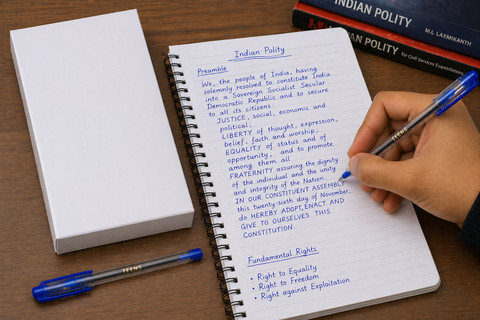 INDIAN POLITY
M.L. LAXMIKANTH
INDIAN POLITY
for Civil Services Examinations
Indian Polity
Preamble
We, the people of India, having
solemnly resolved to constitute India
into a Sovereign Socialist Secular
Democratic Republic and to secure
to all its citizens:
JUSTICE, social, economic and
political,
LIBERTY of thought, expression,
belief, faith and worship;
EQUALITY of status and of
opportunity, and to promote
among them all
FRATERNITY assuring the dignity
of the individual and the unity
and integrity of the Nation.
IN OUR CONSTITUENT ASSEMBLY
this twenty-sixth day of November,
do HEREBY ADOPT, ENACT AND
GIVE TO OURSELVES THIS
CONSTITUTION.
Fundamental Rights
• Right to Equality
• Right to Freedom
• Right against Exploitation